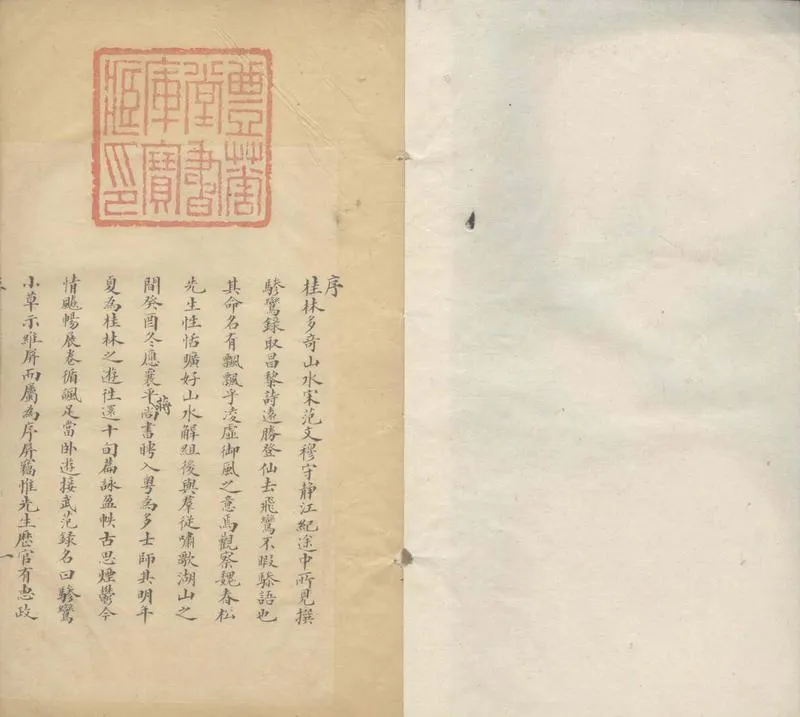 豐華
堂書
庫寶
藏印
序
桂林多奇山水宋范文穆守静江紀途中所見撰
驂鸞録取昌黎詩遠勝登仙去飛鸞不暇驂語也
其命名有飄飄乎凌虚御風之意焉觀察魏春松
先生性恬曠好山水解組後與羣從嘯歌湖山之
間癸酉冬應襄平蔣尚書聘入粤為多士師其明年
夏為桂林之遊往還十旬篇詠盈帙古思煙鬱今
情飈暢展卷循諷足當卧遊接武范録名曰驂鸞
小草示雖屏而屬為序屏竊惟先生歷官有惠政
一